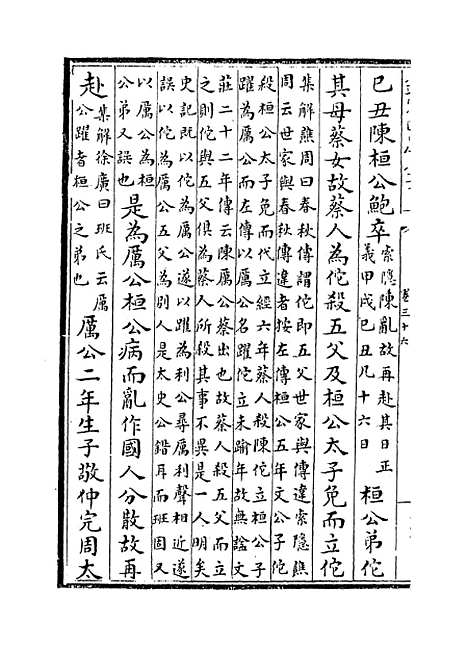 卷三十六
己丑陳桓公鮑卒
索隱陳亂故再赴其日正
義甲戌己丑凡十六日
桓公弟佗
其母蔡女故蔡人為佗殺五父及桓公太子免而立佗
集解譙周曰春秋傳謂佗即五父世家與傳違索隱譙
周云世家與春秋傳違者按左傳桓公五年文公子佗
殺桓公太子免而代立經六年蔡人殺陳佗立桓公子
躍為厲公而左傳以厲公名躍佗立未踰年故無諡又
莊二十二年傳云陳厲公蔡出也故蔡人殺五父而立
之則佗與五父俱為蔡人所殺其事不異是一人明矣
史記既以佗為厲公遂以躍為利公尋厲利聲相近遂
誤以佗為厲公五父為別人是太史公錯耳而班固又
以厲公為桓
公弟又誤也
是為厲公桓公病而亂作國人分散故再
赴
集解徐廣曰班氏云厲
公躍者桓公之弟也
厲公二年生子敬仲完周太